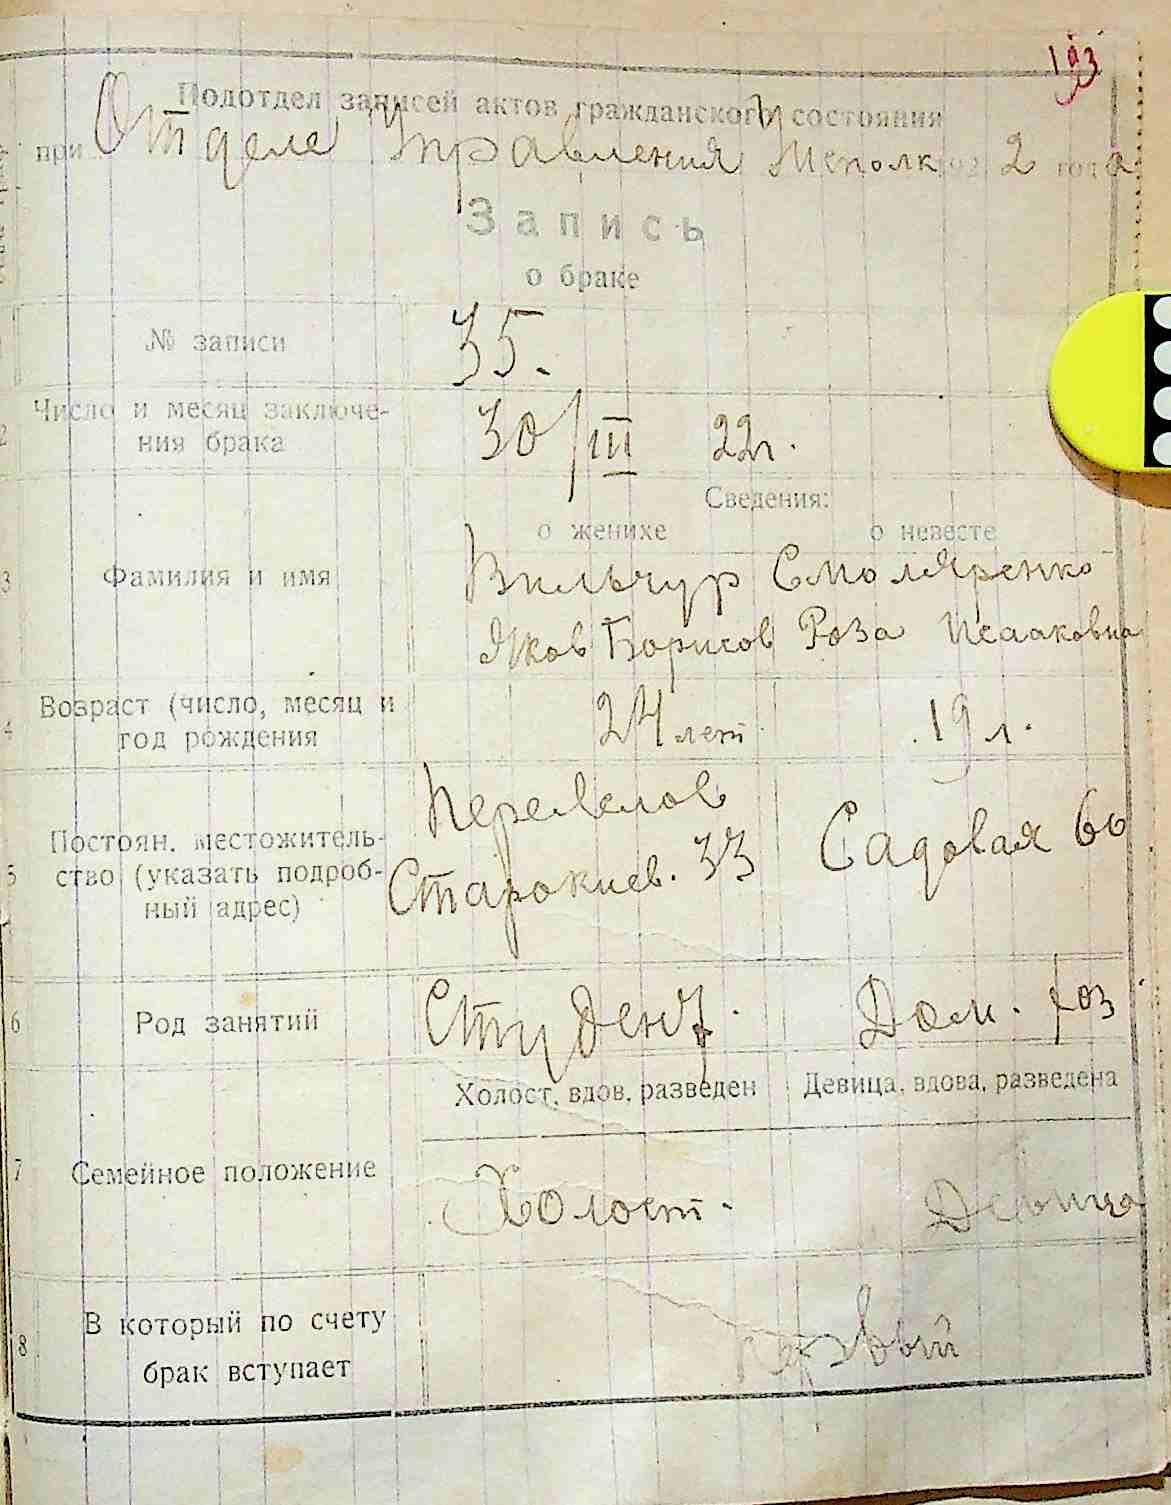 193
Подотдел записей актов гражданского состояния
при Отделе Управления Исполк 1922 года
Запись
о браке
№ записи 35.
2 Число и месяц заключе-
ния брака 30/III 22г.
Сведения:
о женихе о невесте
3 Фамилия и имя Вильчур Смоляренко
Яков Борисов Роза Исааковна
4 Возраст (число, месяц и
год рождения 24 лет 19 л.
Переяслов
5 Постоян. местожитель-
ство (указать подроб-
ный адрес) Старокиев. 33 Садовая 60
6 Род занятий Студент. Дом. хоз
Холост, вдов, разведен Девица, вдова, разведена
7 Семейное положение Холост. Девица
8 В который по счету
брак вступает первый